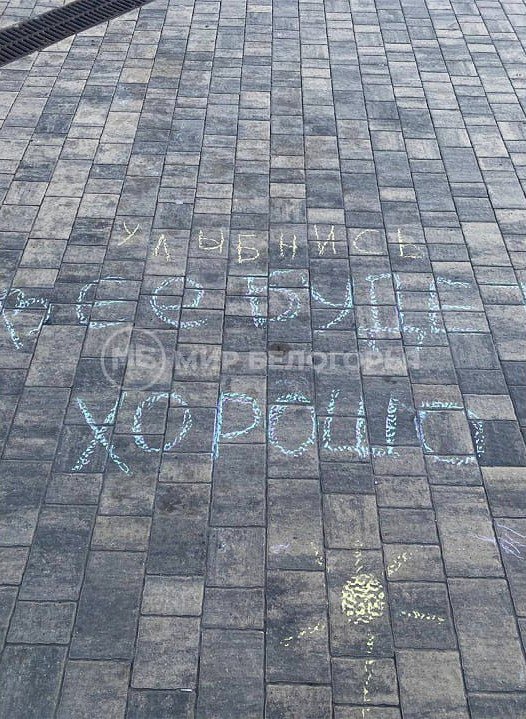 УЛЫБНИСЬ
ВСЕ БУДЕТ
МБ МИР БЕЛОГОРЬЯ
ХОРОШО